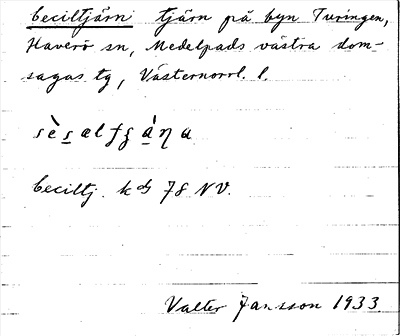 Ceciltjärn tjärn på byn Turingen,
Haverö sn, Medelpads västra dom-
sagas tg, Västernorrl. l.
Ceciltj. kbl 78 NV.
Valter Jansson 1933.